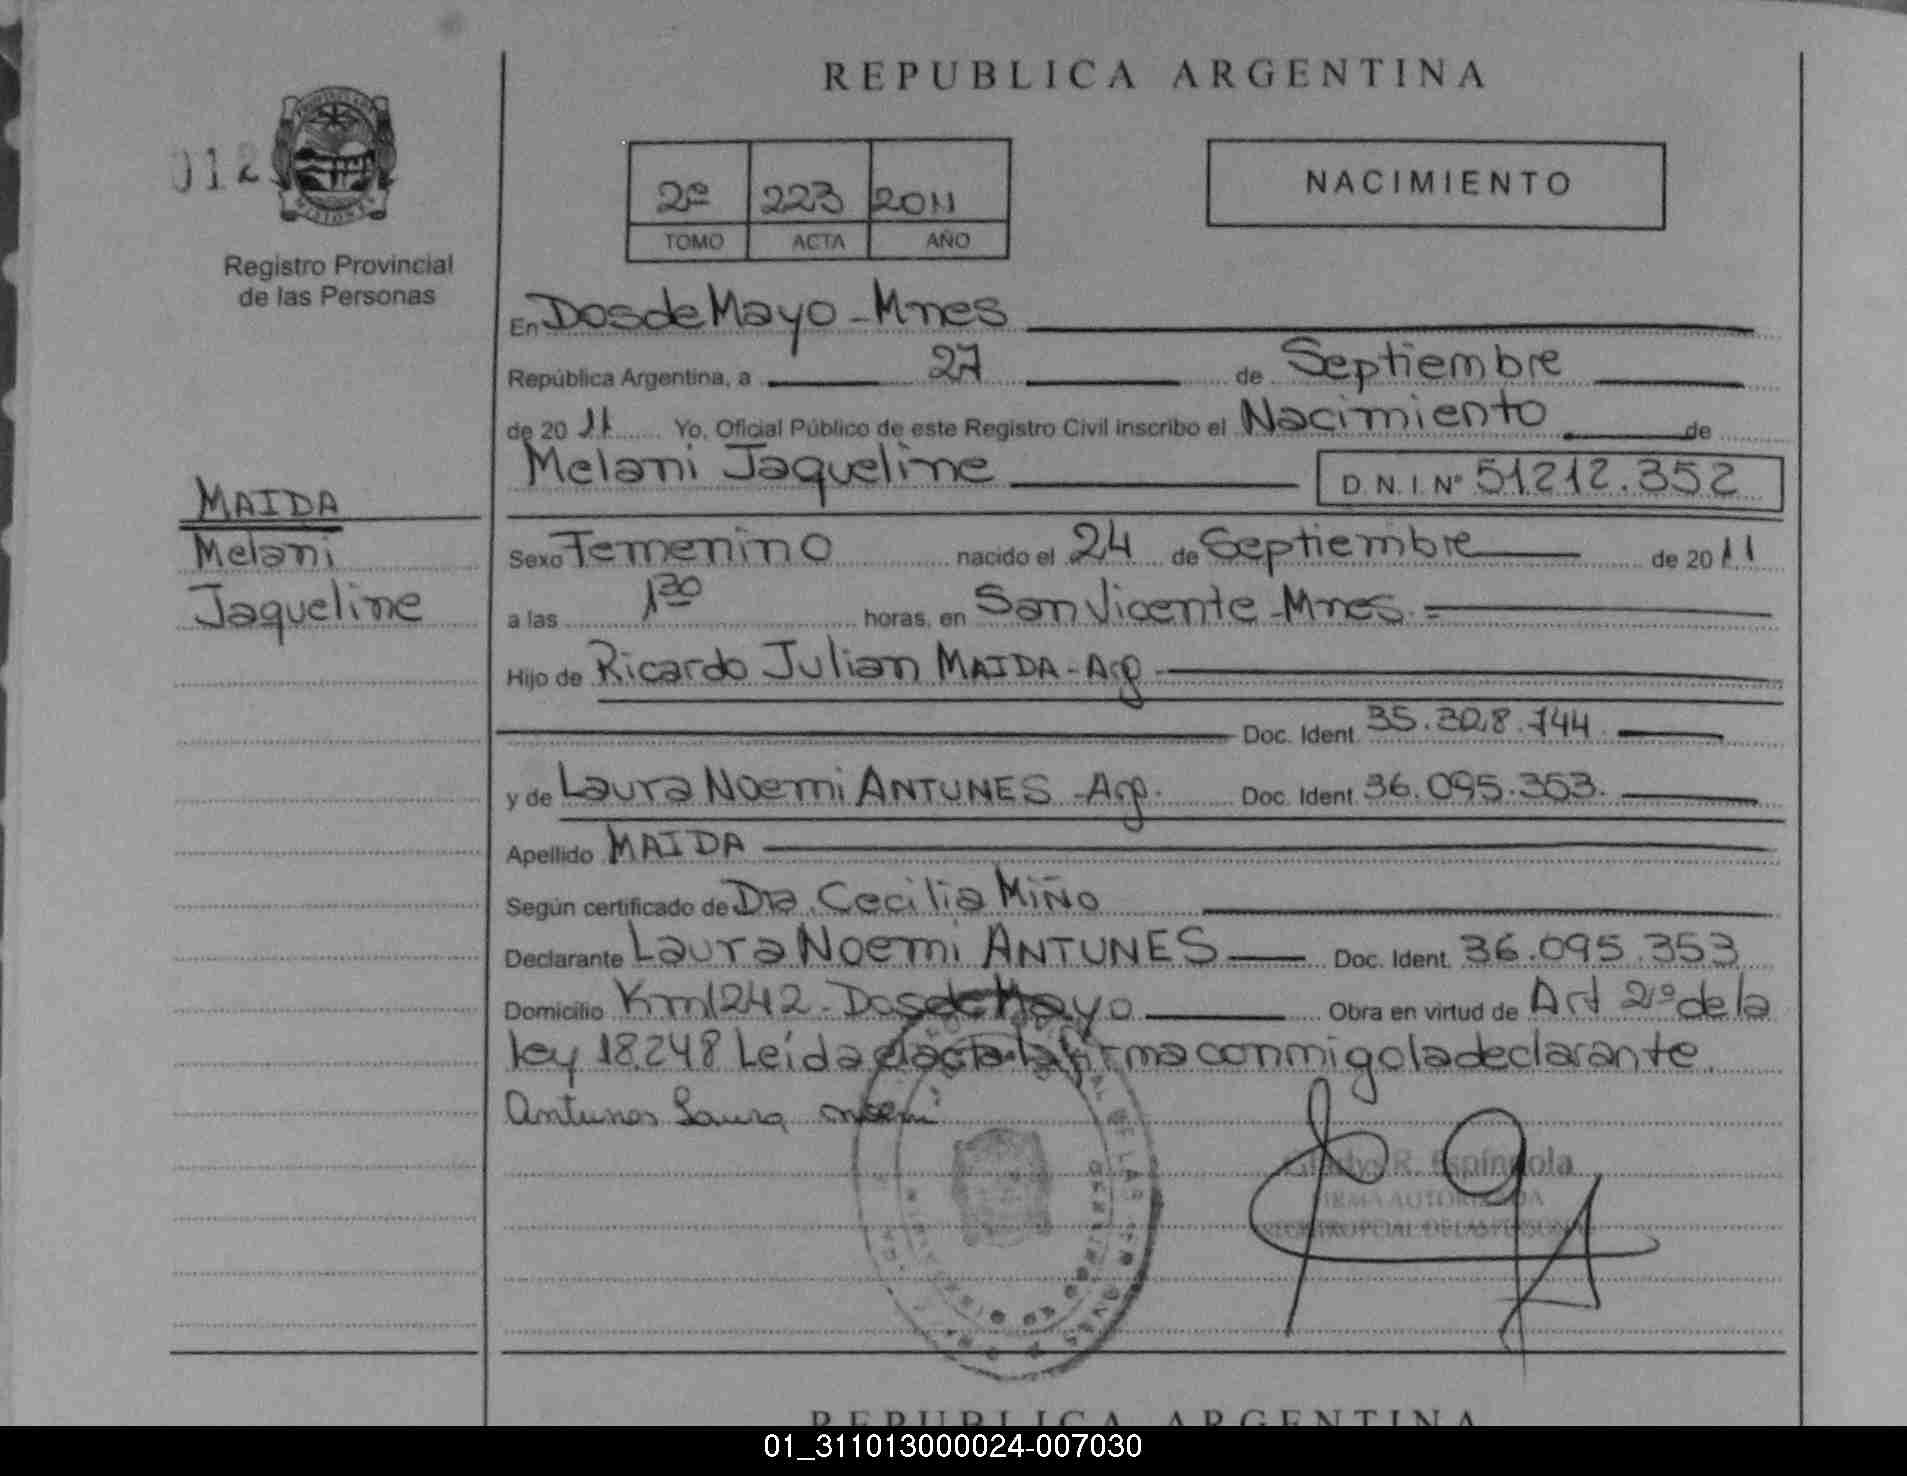 REPUBLICA ARGENTINA
012
2º 223 2011
TOMO ACTA AÑO
NACIMIENTO
Registro Provincial
de las Personas
En Dos de Mayo - Mnes
República Argentina, a 27 de Septiembre
de 2011 Yo, Oficial Público de este Registro Civil inscribo el Nacimiento de
Melani Jaqueline D.N.I. Nº 51212.352
MAIDA
Melani
Jaqueline
Sexo Femenino nacido el 24 de Septiembre de 2011
a las 1 30 horas, en San Vicente - Mnes.
Hijo de Ricardo Julian MAIDA - Arg
Doc. Ident. 35.328.744
y de Laura Noemi ANTUNES - Arg. Doc. Ident. 36.095.353.
Apellido MAIDA
Según certificado de Dra. Cecilia Miño
Declarante Laura Noemi ANTUNES Doc. Ident. 36.095.353
Domicilio Km1242 - Dos de Mayo Obra en virtud de Art 2º de la
ley 18.248 Leída el acta la firma conmigo la declarante.
Antunes Laura noemi
Gladys R. Espíndola
FIRMA AUTORIZADA
REGISTRO PCIAL DE LAS PERSONAS
REPUBLICA ARGENTINA
01_311013000024-007030